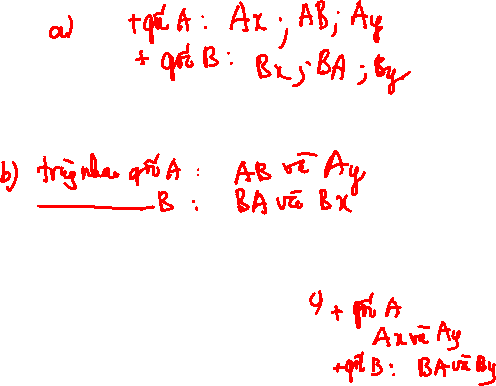 a) + gốc A : Ax ; AB ; Ay
+ gốc B : Bx ; BA ; By
b) trùng nhau gốc A : AB và Ay
B : BA và Bx
c) + gốc A
Ax và Ay
+ gốc B : BA và By